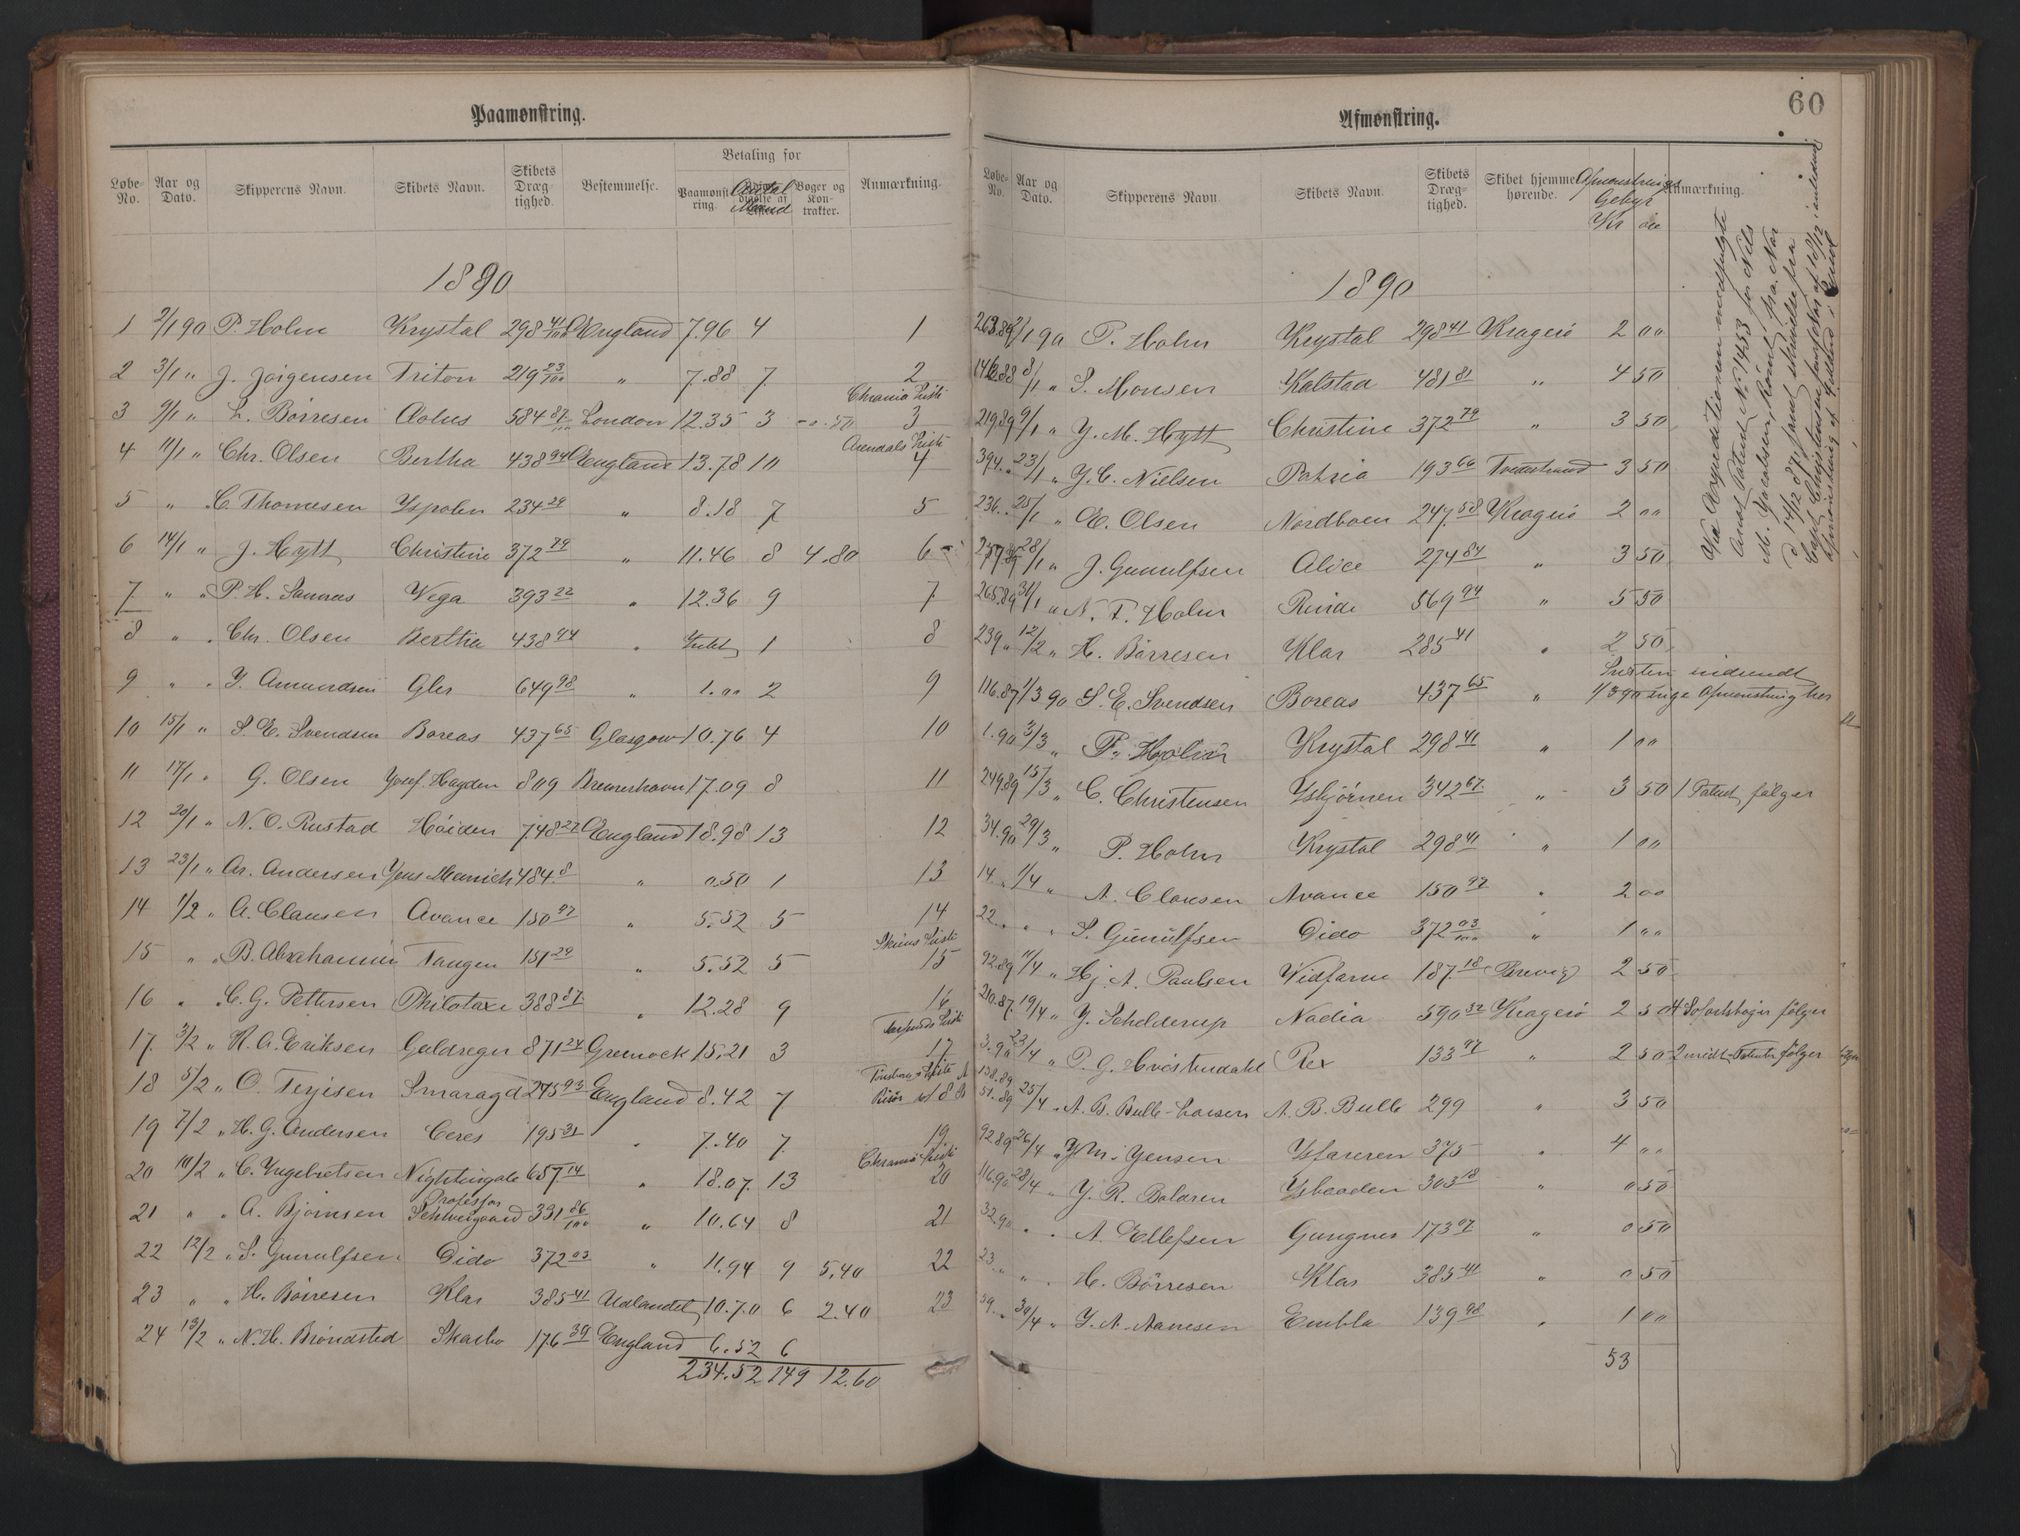 Paamønstring.
Løbe-No. Aar og Dato. Skipperens Navn. Skibets Navn. Skibets Dræg-tighed. Bestemmelse. Betaling for Paamønst-ring. Antal Mænd Bøger og Kon-trakter. Anmærkning.
1890
1 2/1 90 P. Holm Krystal 298 41/100 England 7.96 4 1
2 3/1 " J. Jörgensen Triton 219 23/100 " 7.88 7 2
Chrania Liste
3 9/1 " L. Börresen Aolus 584 87/100 London 12.35 3 -.50 3
Arendals Liste
4 11/1 " Chr. Olsen Bertha 438 94 England 13.78 10 4
5 " " C. Thomesen Yspolen 234 29 " 8.18 7 5
6 14/1 " J. Hytt Christine 372 79 " 11.46 8 4.80 6
7 " " P. H. Sannæs Vega 393 22 " 12.36 9 7
8 " " Chr. Olsen Bertha 438 94 " 1 8
9 " " Y. Amundsen Gler 649 98 " 1.00 2 9
10 15/1 " S. E. Svendsen Boreas 437 65 Glasgow 10.76 4 10
11 17/1 " G. Olsen Josef Hayden 809 Bremerhavn 17.09 8 11
12 20/1 " N. O. Rustad Höiden 748 27 England 18.98 13 12
13 23/1 " Ar. Andersen 484.8 " 0.50 1 13
14 1/2 " A. Clausen Avance 150 97 " 5.52 5 14
Skiens Liste
15 " " B. Abrahamsen Tangen 151 29 " 5.52 5 15
16 " " C. G. Pettersen Philotaxe 388 87 " 12.28 9 16
17 3/2 " H. A. Eriksen Galdregn 871 24 Greenock 15.21 3 17
18 5/2 " O. Terjisen Smaragd 275 93 England 8.42 7 18
19 7/2 " H. G. Andersen Ceres 195 31 " 7.40 7 19
Chrania Liste
20 10/2 " C. Yngebretsen Nightingale 657 14 " 18.07 13 20
21 " " A. Bjørnsen Professor Schweigaard 331 86/100 " 10.64 8 21
22 12/2 " S. Gunulfsen Dido 372 03 " 11.94 9 5.40 22
23 " " H. Börresen Klar 385 41 Udlandet 10.70 6 2.40 23
24 13/2 " N. H. Bröndsted Skarbo 176 39 England 6.52 6
234.52 149 12.60
60
Afmønstring.
Løbe-No. Aar og Dato. Skipperens Navn. Skibets Navn. Skibets Dræg-tighed. Skibet hjemme-hørende. Afmönstrings Gebyr Kr øre Anmærkning.
1890
263.89 2/1 90 P. Holm Krystal 298 41 Kragerö 2 00
8/1 " S. Monsen Kalstad 481 81 " 4 50
219.89 9/1 " J. M. Hytt Christine 372 79 " 3 50
394. " 23/1 " J. C. Nielsen Patria 193 66 Tvedestrand 3 50
236. " 25/1 " E. Olsen Nordboen 247.58 Kragerö 2 00
28/1 " J. Gunulfsen Alice 274 84 " 3 50
265.89 31/1 " N. T. Holm Rinde 569 94 " 5 50
239 " 12/2 " H. Börresen Klar 285 41 " 2 50
116.87 1/3 90 S. E. Svendsen Boreas 437 65 " Listen indsendt 1/3 90 inge Afmønstring her
1.90 3/3 " P. Holm Krystal 298 41 " 1 00
249.89 15/3 " C. Christensen Ysbjörnen 342 67 " 3 50 1 Patent følger
34.90 29/3 " P. Holm Krystal 298 41 " 1 00
14. " 1/4 " A. Clausen Avance 150 97 " 2 00
22. " " " S. Gunulfsen Dido 372 03/100 " 1 00
92.89 11/4 " Hj. A. Paulsen Vidfarne 187.18 Brevig 2 50
210.87. 19/4 " J. Schelderup Nadia 590 32 Kragerö 2 50 4 Sofartsbøger følger
3.90 23/4 " P. G. Hvistendahl Rex 133 97 " 2 50 2 følger
138.89
51.89 25/4 " A. B. Bulle-Larsen A. B. Bulle 299 " 3 50
92.89 26/4 " J. M. Jensen Ysfareren 375 " 4 "
116.90 28/4 " J. R. Balaren Ysbaaden 303 18 " 0 50
32.90 " " A. Ellefsen Gungner 173 07 " 0 50
23. " " " H. Börresen Klar 385 41 " 0 50
59. " 30/4 " J. A. Aanesen Embla 139 98 " 1 00
53
Via Expeditionen medfulgte
Patent No 1453 for Nils
M. Jacobsen